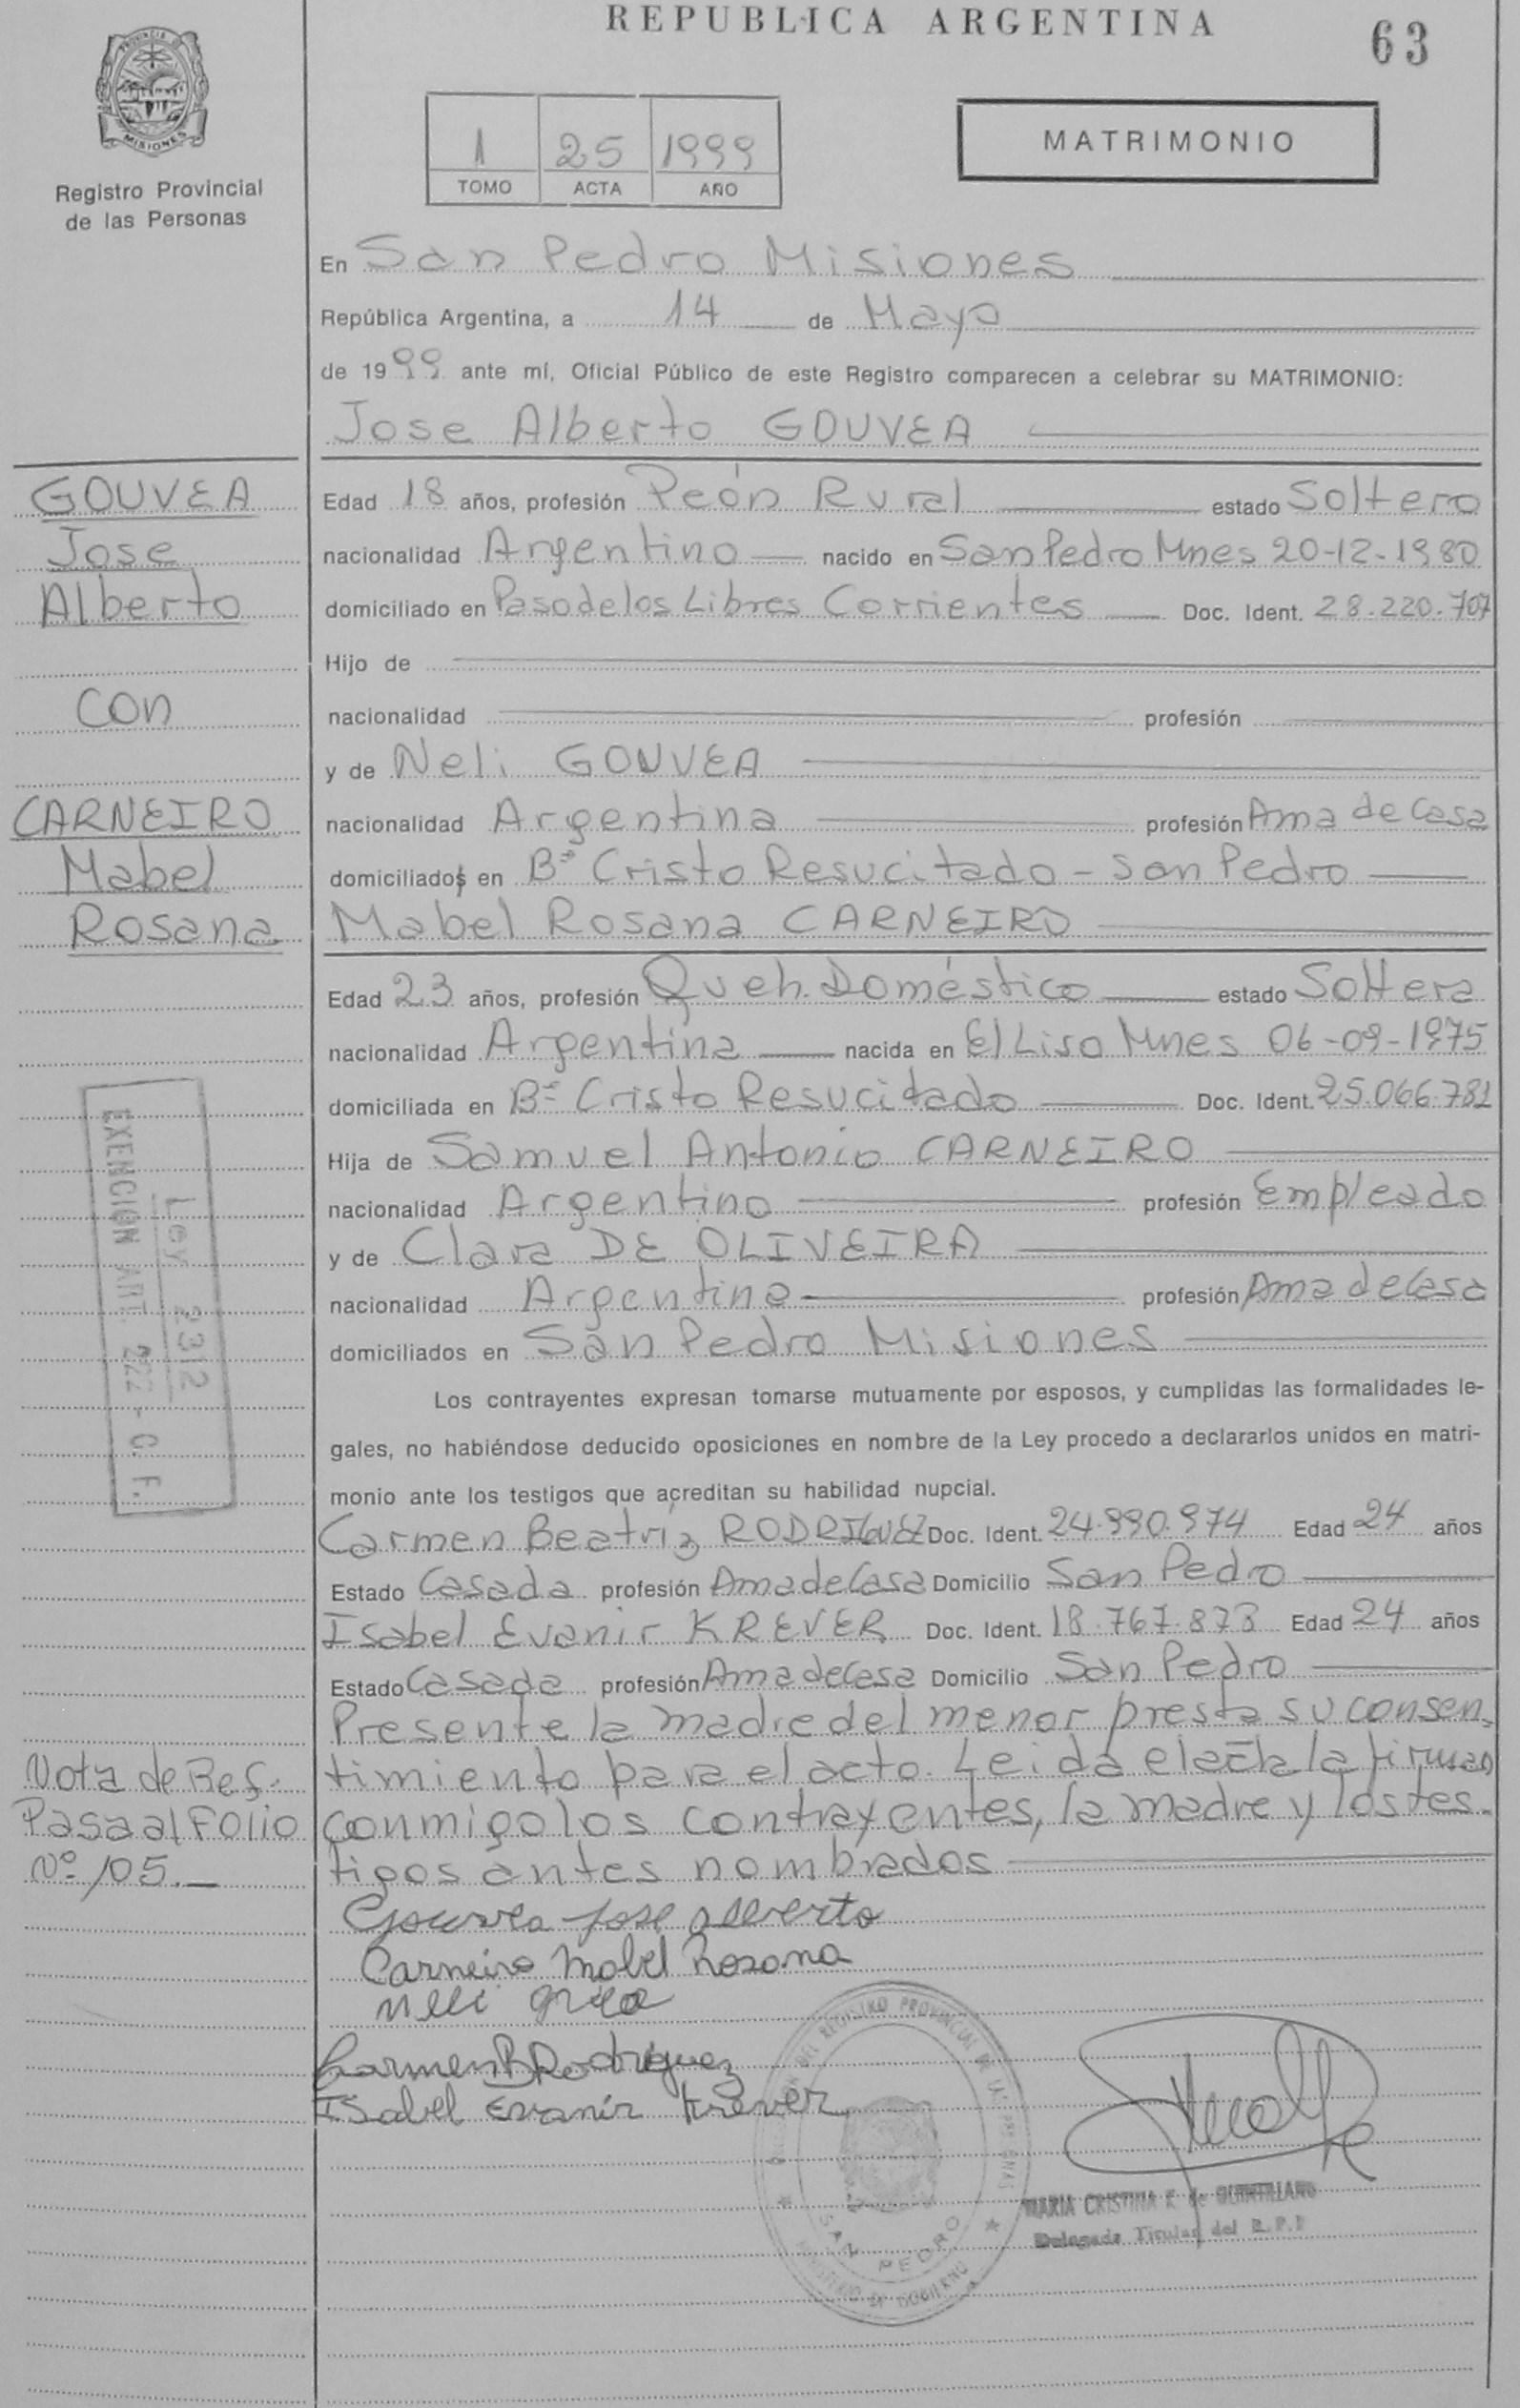 REPUBLICA ARGENTINA
63
MISIONES
Registro Provincial
de las Personas
1 25 1999
TOMO ACTA AÑO
MATRIMONIO
En San Pedro Misiones
República Argentina, a 14 de Mayo
de 1999 ante mí, Oficial Público de este Registro comparecen a celebrar su MATRIMONIO:
Jose Alberto GOUVEA
GOUVEA
Jose
Alberto
con
CARNEIRO
Mabel
Rosana
Edad 18 años, profesión Peón Rural estado Soltero
nacionalidad Argentino nacido en San Pedro Mnes 20-12-1980
domiciliado en Paso de los Libres Corrientes Doc. Ident. 28.220.707
Hijo de
nacionalidad profesión
y de Neli GOUVEA
nacionalidad Argentina profesión Ama de Casa
domiciliados en Bº Cristo Resucitado - San Pedro
Mabel Rosana CARNEIRO
Edad 23 años, profesión Queh. Doméstico estado Soltera
nacionalidad Argentina nacida en El Liso Mnes 06-09-1975
domiciliada en Bº Cristo Resucitado Doc. Ident. 25.066.781
Hija de Samuel Antonio CARNEIRO
nacionalidad Argentino profesión Empleado
y de Clara DE OLIVEIRA
nacionalidad Argentina profesión Ama de Casa
domiciliados en San Pedro Misiones
Ley 2312
EXENCION ART. 222 - C. F.
Los contrayentes expresan tomarse mutuamente por esposos, y cumplidas las formalidades le-
gales, no habiéndose deducido oposiciones en nombre de la Ley procedo a declararlos unidos en matri-
monio ante los testigos que acreditan su habilidad nupcial.
Carmen Beatríz RODRIGUEZ Doc. Ident. 24.990.974 Edad 24 años
Estado Casada profesión Ama de Casa Domicilio San Pedro
Isabel Evanir KREVER Doc. Ident. 18.767.873 Edad 24 años
Estado Casada profesión Ama de Casa Domicilio San Pedro
Presente la madre del menor presta su consen-
timiento para el acto. Leida el acta la firman
conmigo los contrayentes, la madre y los tes-
tigos antes nombrados
Nota de Ref.
Pasa al Folio
Nº 105.
Gouvea Jose Alberto
Carneiro Mabel Rosana
Neli
Carmen B Rodriguez
Isabel Evanir Krever
DEL REGISTRO PROVINCIAL DE LAS PERSONAS
SAN PEDRO
MINISTERIO DE GOBIERNO
MARIA CRISTINA F. de QUINTILIANO
Delegada Titular del R. P. P.